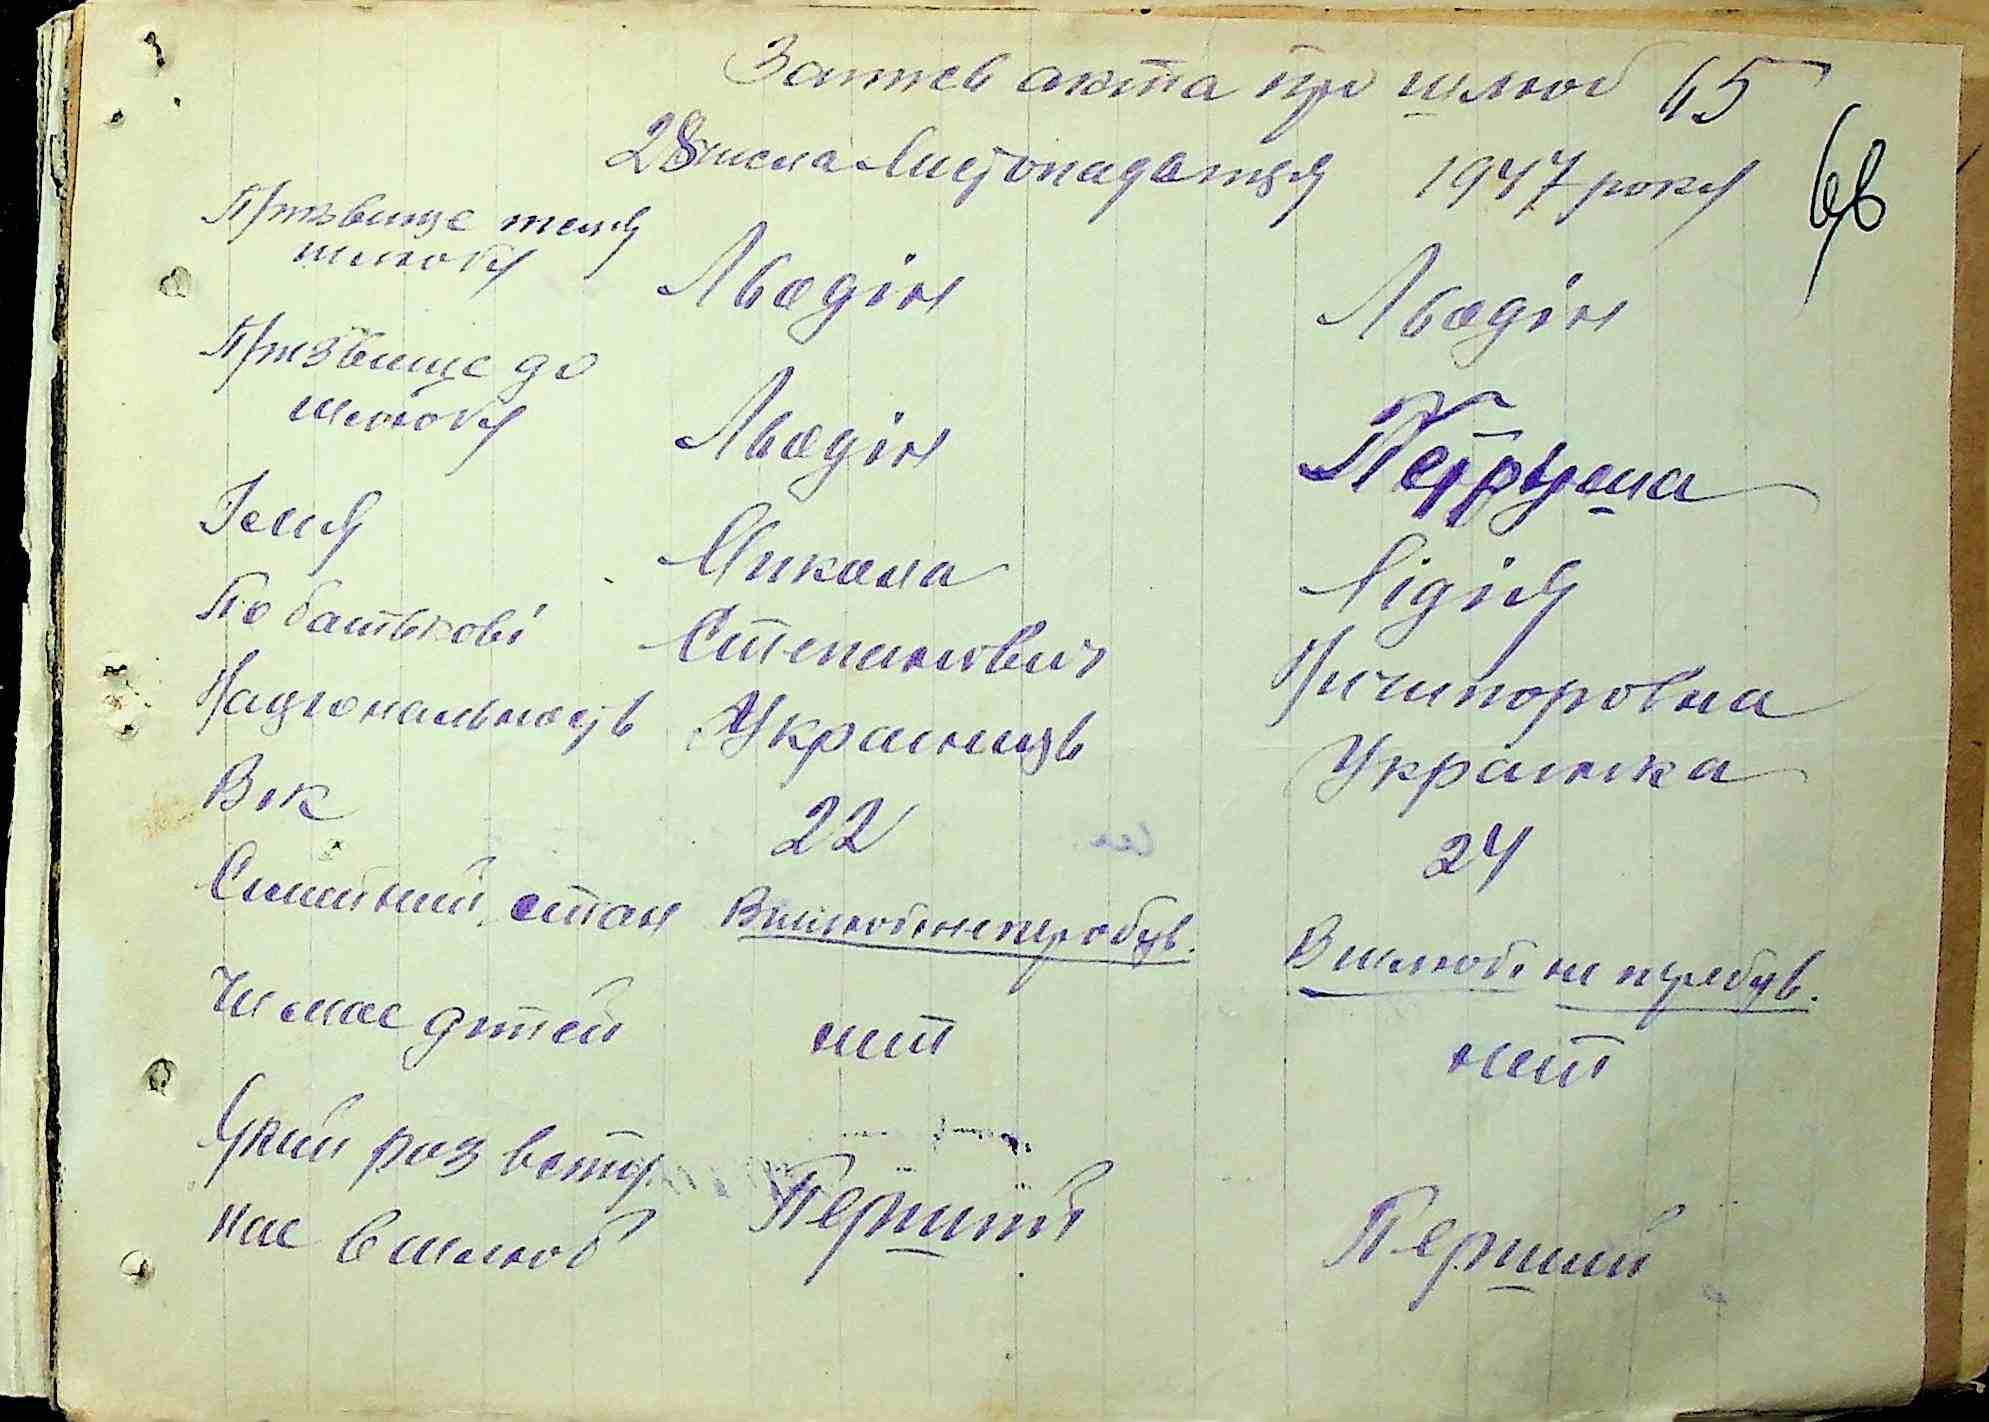 Запись акта про шлюб 65
28 числа Листопадатця 1947 року
66
Призвище писля шлюбу Лбєдін Лбєдін
Призвище до шлюбу Лбєдін Петруша
Імья Микола Лідія
По батькові Степанович Ничипоровна
Національность Украинець Украинка
Вік 22 24
Симейний стан В шлюбі не перебув. В шлюбі не перебув.
Чи має дитей нит нит
Який раз вступ
пає в шлюб Перший Перший